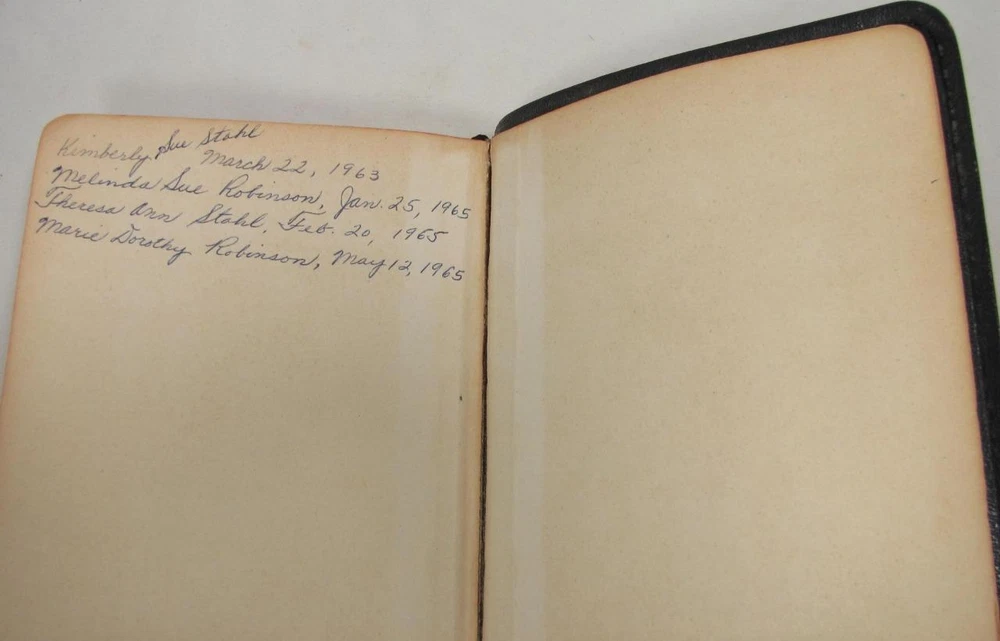 Kimberly Sue Stahl
March 22, 1963
Melinda Sue Robinson, Jan. 25, 1965
Theresa Ann Stahl, Feb. 20, 1965
Marie Dorothy Robinson, May 12, 1965